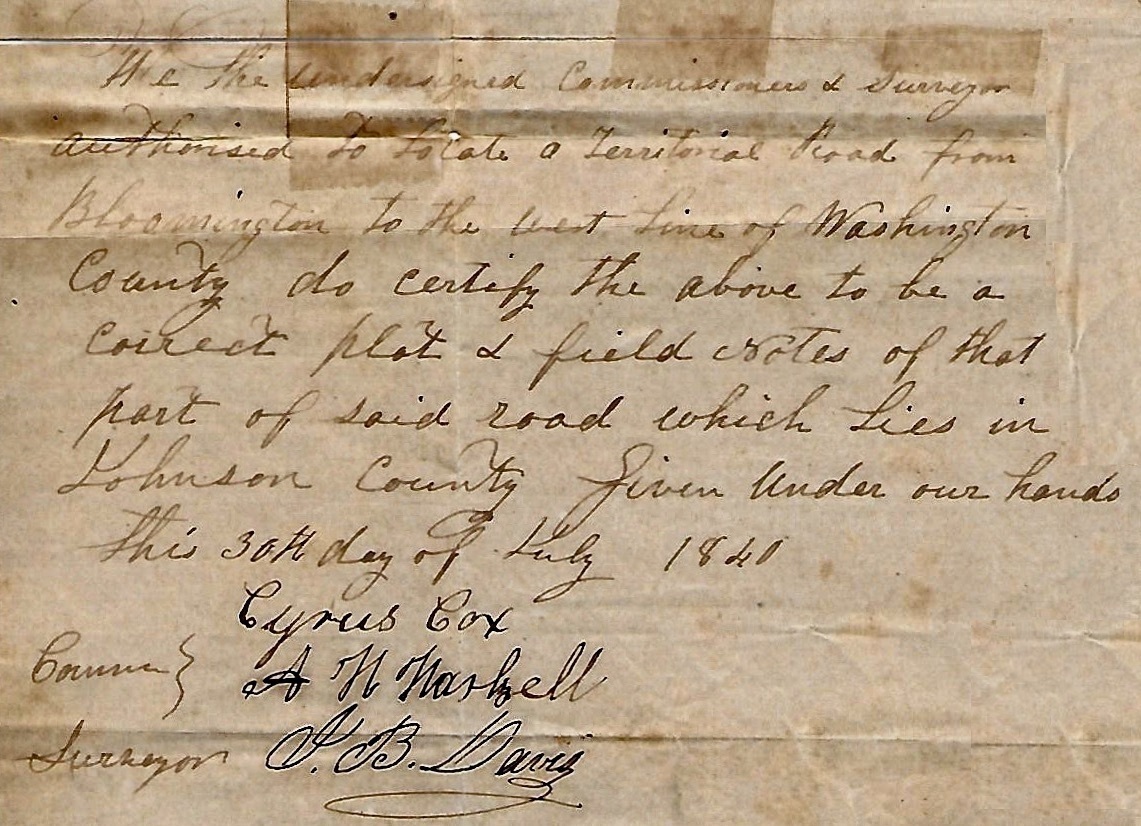 We the undersigned Commissioners & Surveyor
authorised to locate a Territorial Road from
Bloomington to the west Line of Washington
County do certify the above to be a
correct plat & field Notes of that
part of said road which Lies in
Johnson County Given Under our hands
this 30th day of July 1840
Cyrus Cox
A H Haskell
Surveyor J. B. Davis